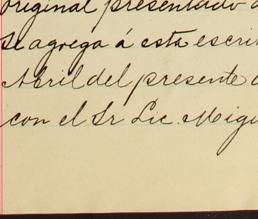 original presentado
se agrega á esta escri
Abril del presente
con el Sr Lic. Migu